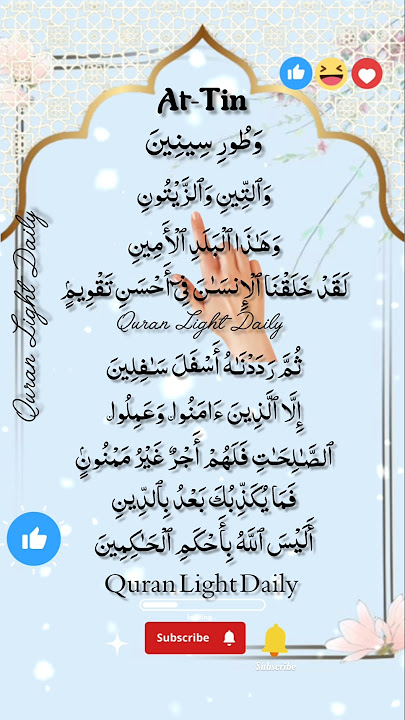 At-Tin
وَطُورِ سِينِينَ
وَٱلتِّينِ وَٱلزَّيْتُونِ
وَهَٰذَا ٱلْبَلَدِ ٱلْأَمِينِ
لَقَدْ خَلَقْنَا ٱلْإِنسَٰنَ فِىٓ أَحْسَنِ تَقْوِيمٍ
Quran Light Daily
Quran Light Daily
ثُمَّ رَدَدْنَٰهُ أَسْفَلَ سَٰفِلِينَ
إِلَّا ٱلَّذِينَ ءَامَنُوا۟ وَعَمِلُوا۟
ٱلصَّٰلِحَٰتِ فَلَهُمْ أَجْرٌ غَيْرُ مَمْنُونٍ
فَمَا يُكَذِّبُكَ بَعْدُ بِٱلدِّينِ
أَلَيْسَ ٱللَّهُ بِأَحْكَمِ ٱلْحَٰكِمِينَ
Quran Light Daily
Subscribe
Subscribe